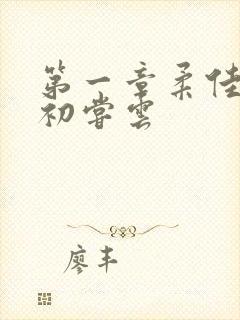 第一章柔佳
初尝云
廖丰